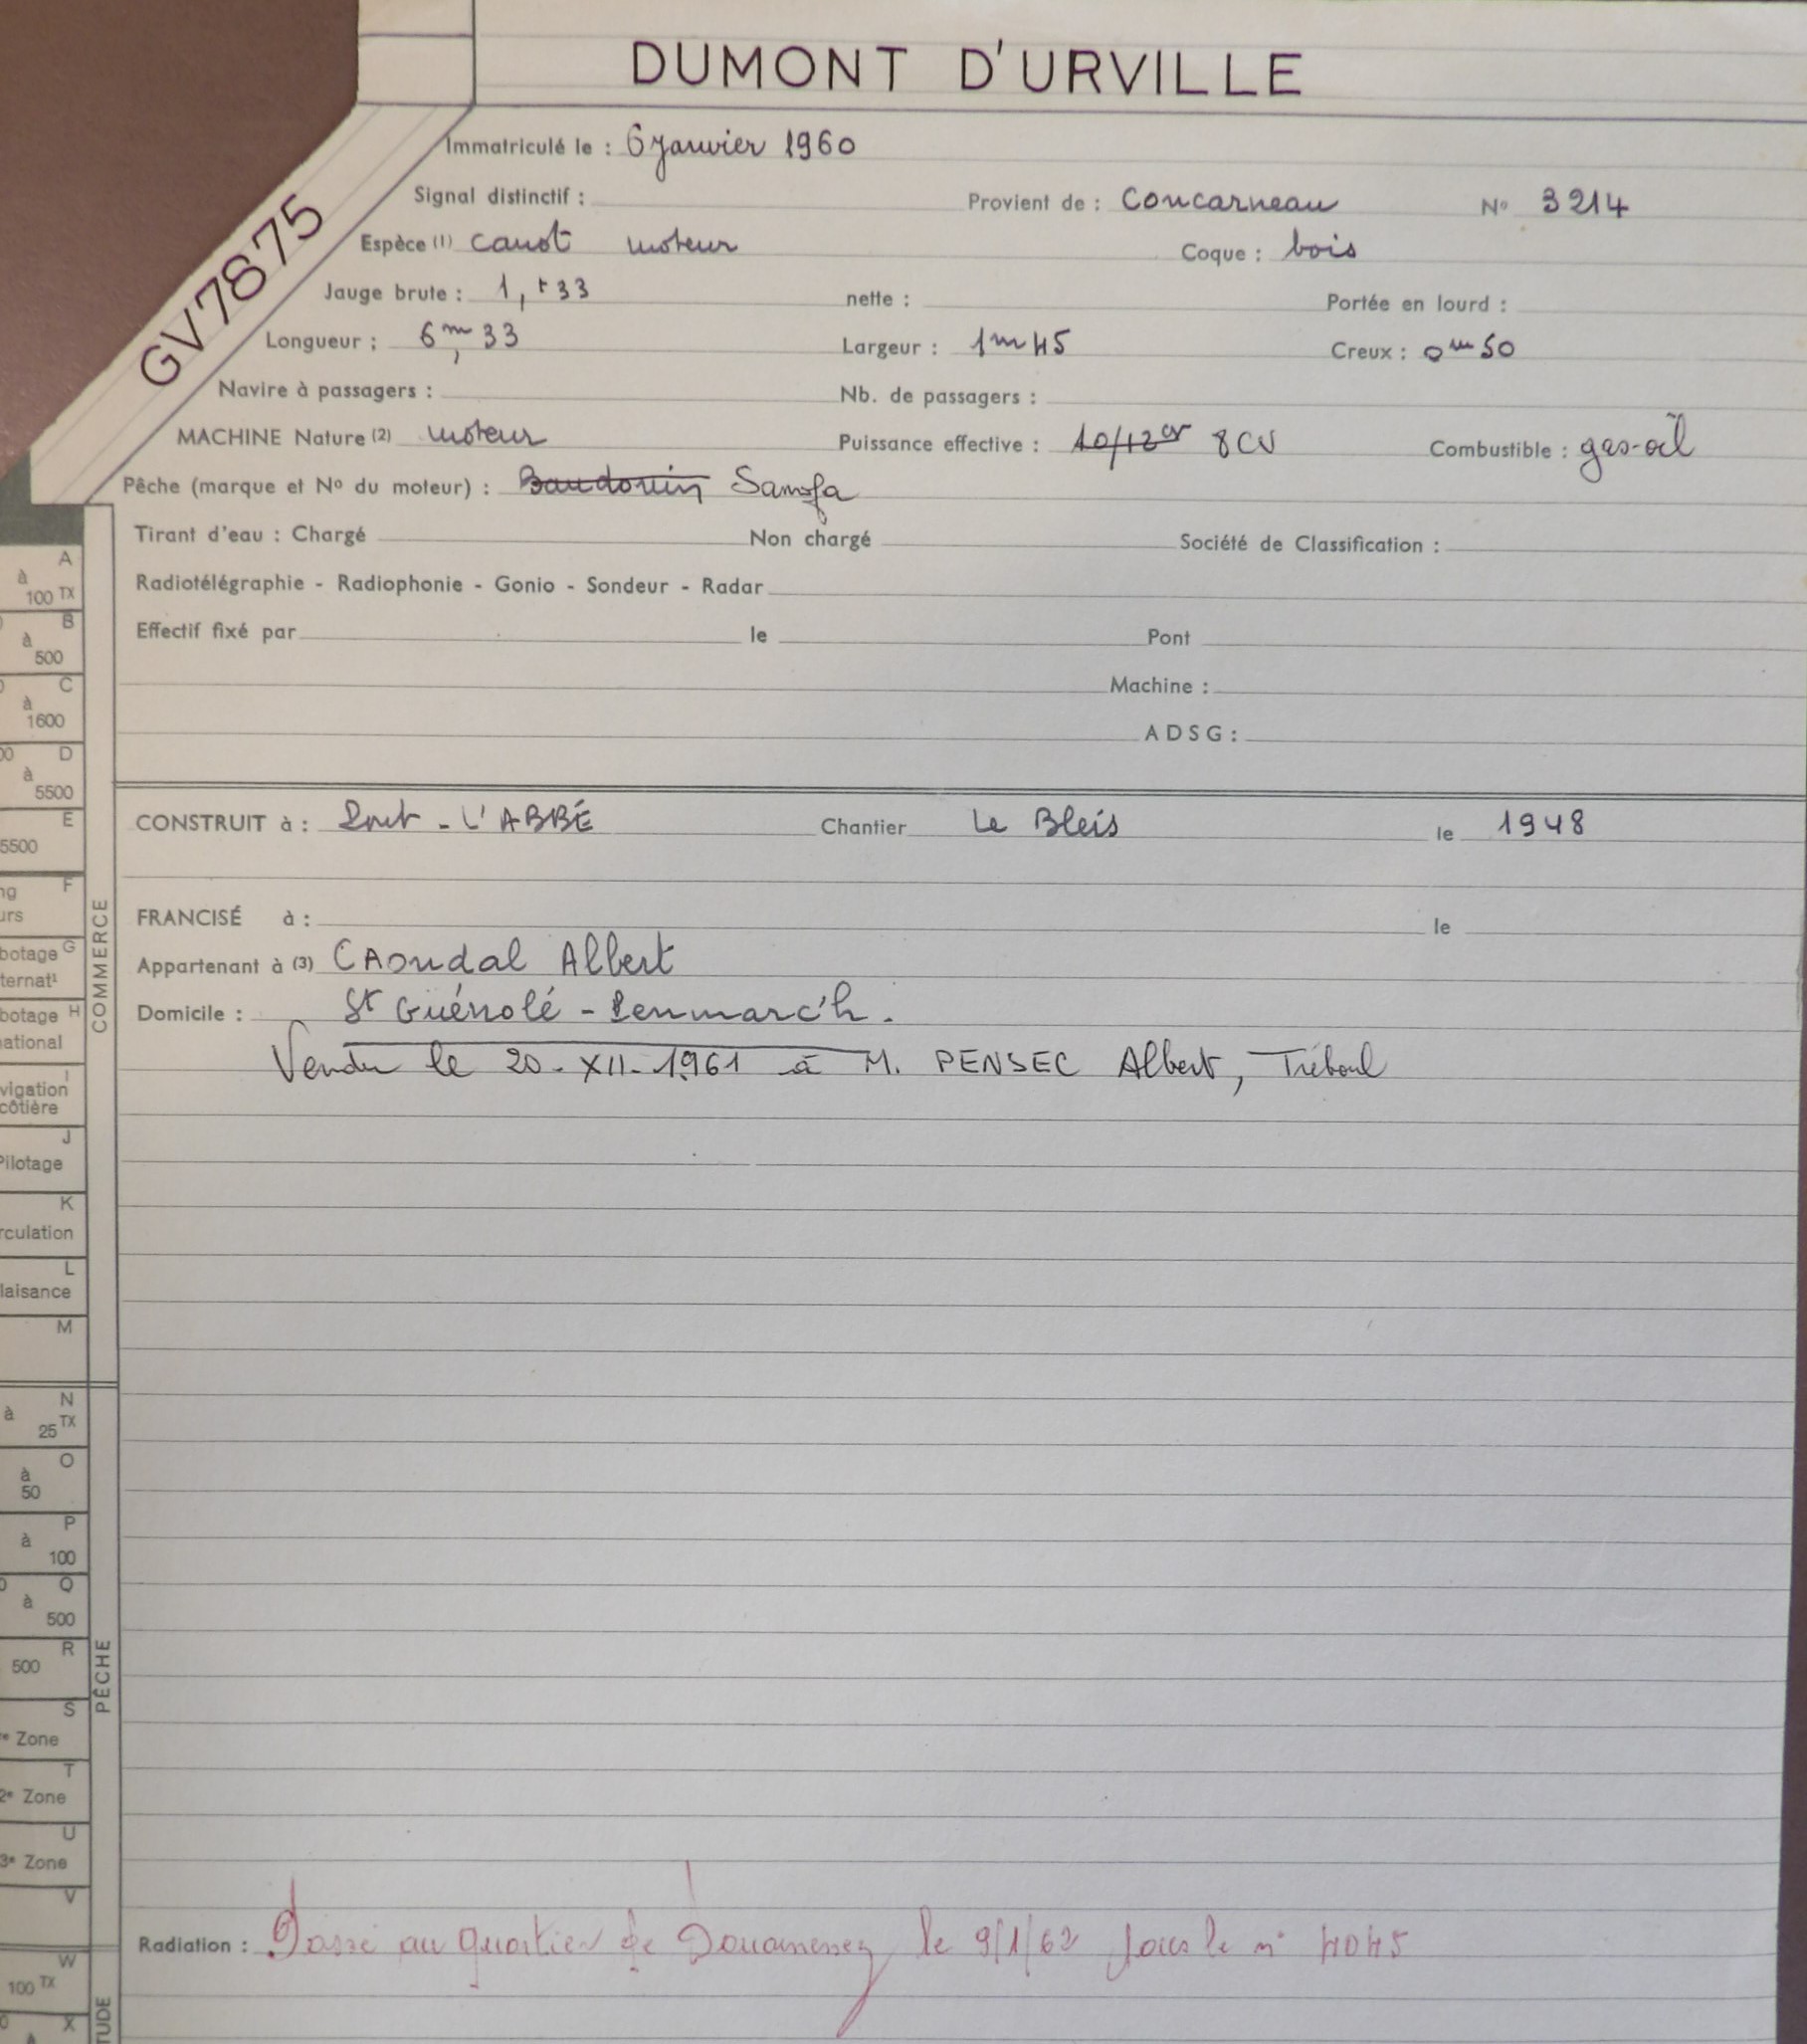 DUMONT D'URVILLE
GV7875
Immatriculé le : 6 janvier 1960
Signal distinctif : Provient de : Concarneau N° 3214
Espèce (1) canot moteur Coque : bois
Jauge brute : 1,t33 nette : Portée en lourd :
Longueur : 6m,33 Largeur : 1m45 Creux : 0m50
Navire à passagers : Nb. de passagers :
MACHINE Nature (2) moteur Puissance effective : 10/12cv 8CV Combustible : gas-oil
Pêche (marque et N° du moteur) : Baudouin Samofa
Tirant d'eau : Chargé Non chargé Société de Classification :
Radiotélégraphie - Radiophonie - Gonio - Sondeur - Radar
Effectif fixé par le Pont
Machine :
ADSG :
CONSTRUIT à : Pont-L'ABBÉ Chantier Le Bleis le 1948
FRANCISÉ à : le
Appartenant à (3) CAoudal Albert
Domicile : St Guénolé - Penmarc'h.
Vendu le 20-XII-1961 à M. PENSEC Albert, Tréboul
Radiation : Passé au quartier de Douarnenez le 9/1/62 sous le n° 4045
A
à
100 TX
B
à
500
C
à
1600
D
à
5500
E
5500
F
G
H
I
J
Pilotage
K
L
M
COMMERCE
N
à
25 TX
O
à
50
P
à
100
Q
à
500
R
500
S
Zone
T
2e Zone
U
3e Zone
V
PÊCHE
W
100 TX
X